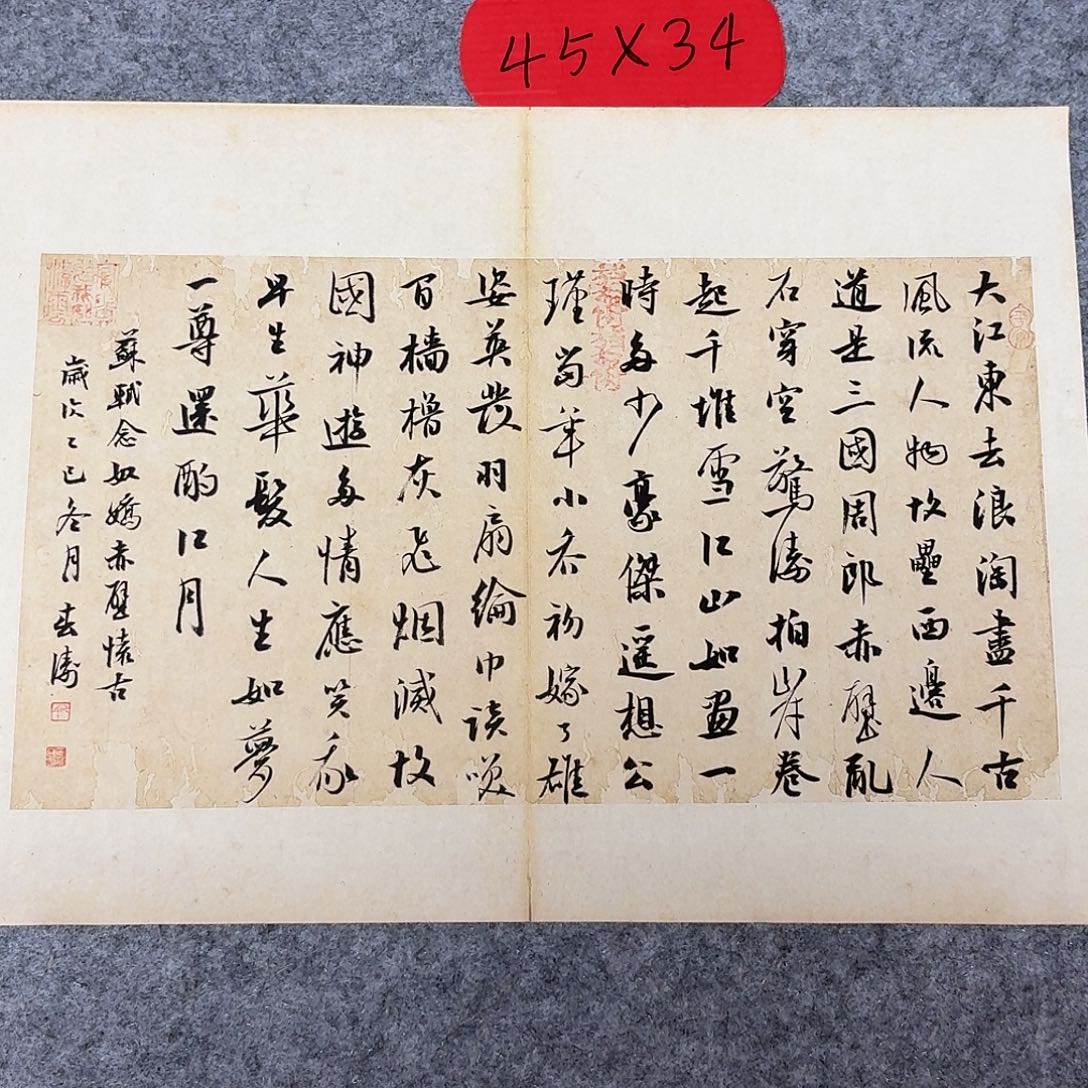 45X34
大江東去浪淘盡千古
風流人物故壘西邊人
道是三國周郎赤壁亂
石穿空驚濤拍岸卷
起千堆雪江山如畫一
時多少豪傑遥想公
瑾當年小喬初嫁了雄
姿英發羽扇綸巾談笑
間檣櫓灰飛烟滅故
國神遊多情應笑我
早生華髮人生如夢
一尊還酹江月
蘇軾念奴嬌赤壁懷古
歲次乙巳冬月濤